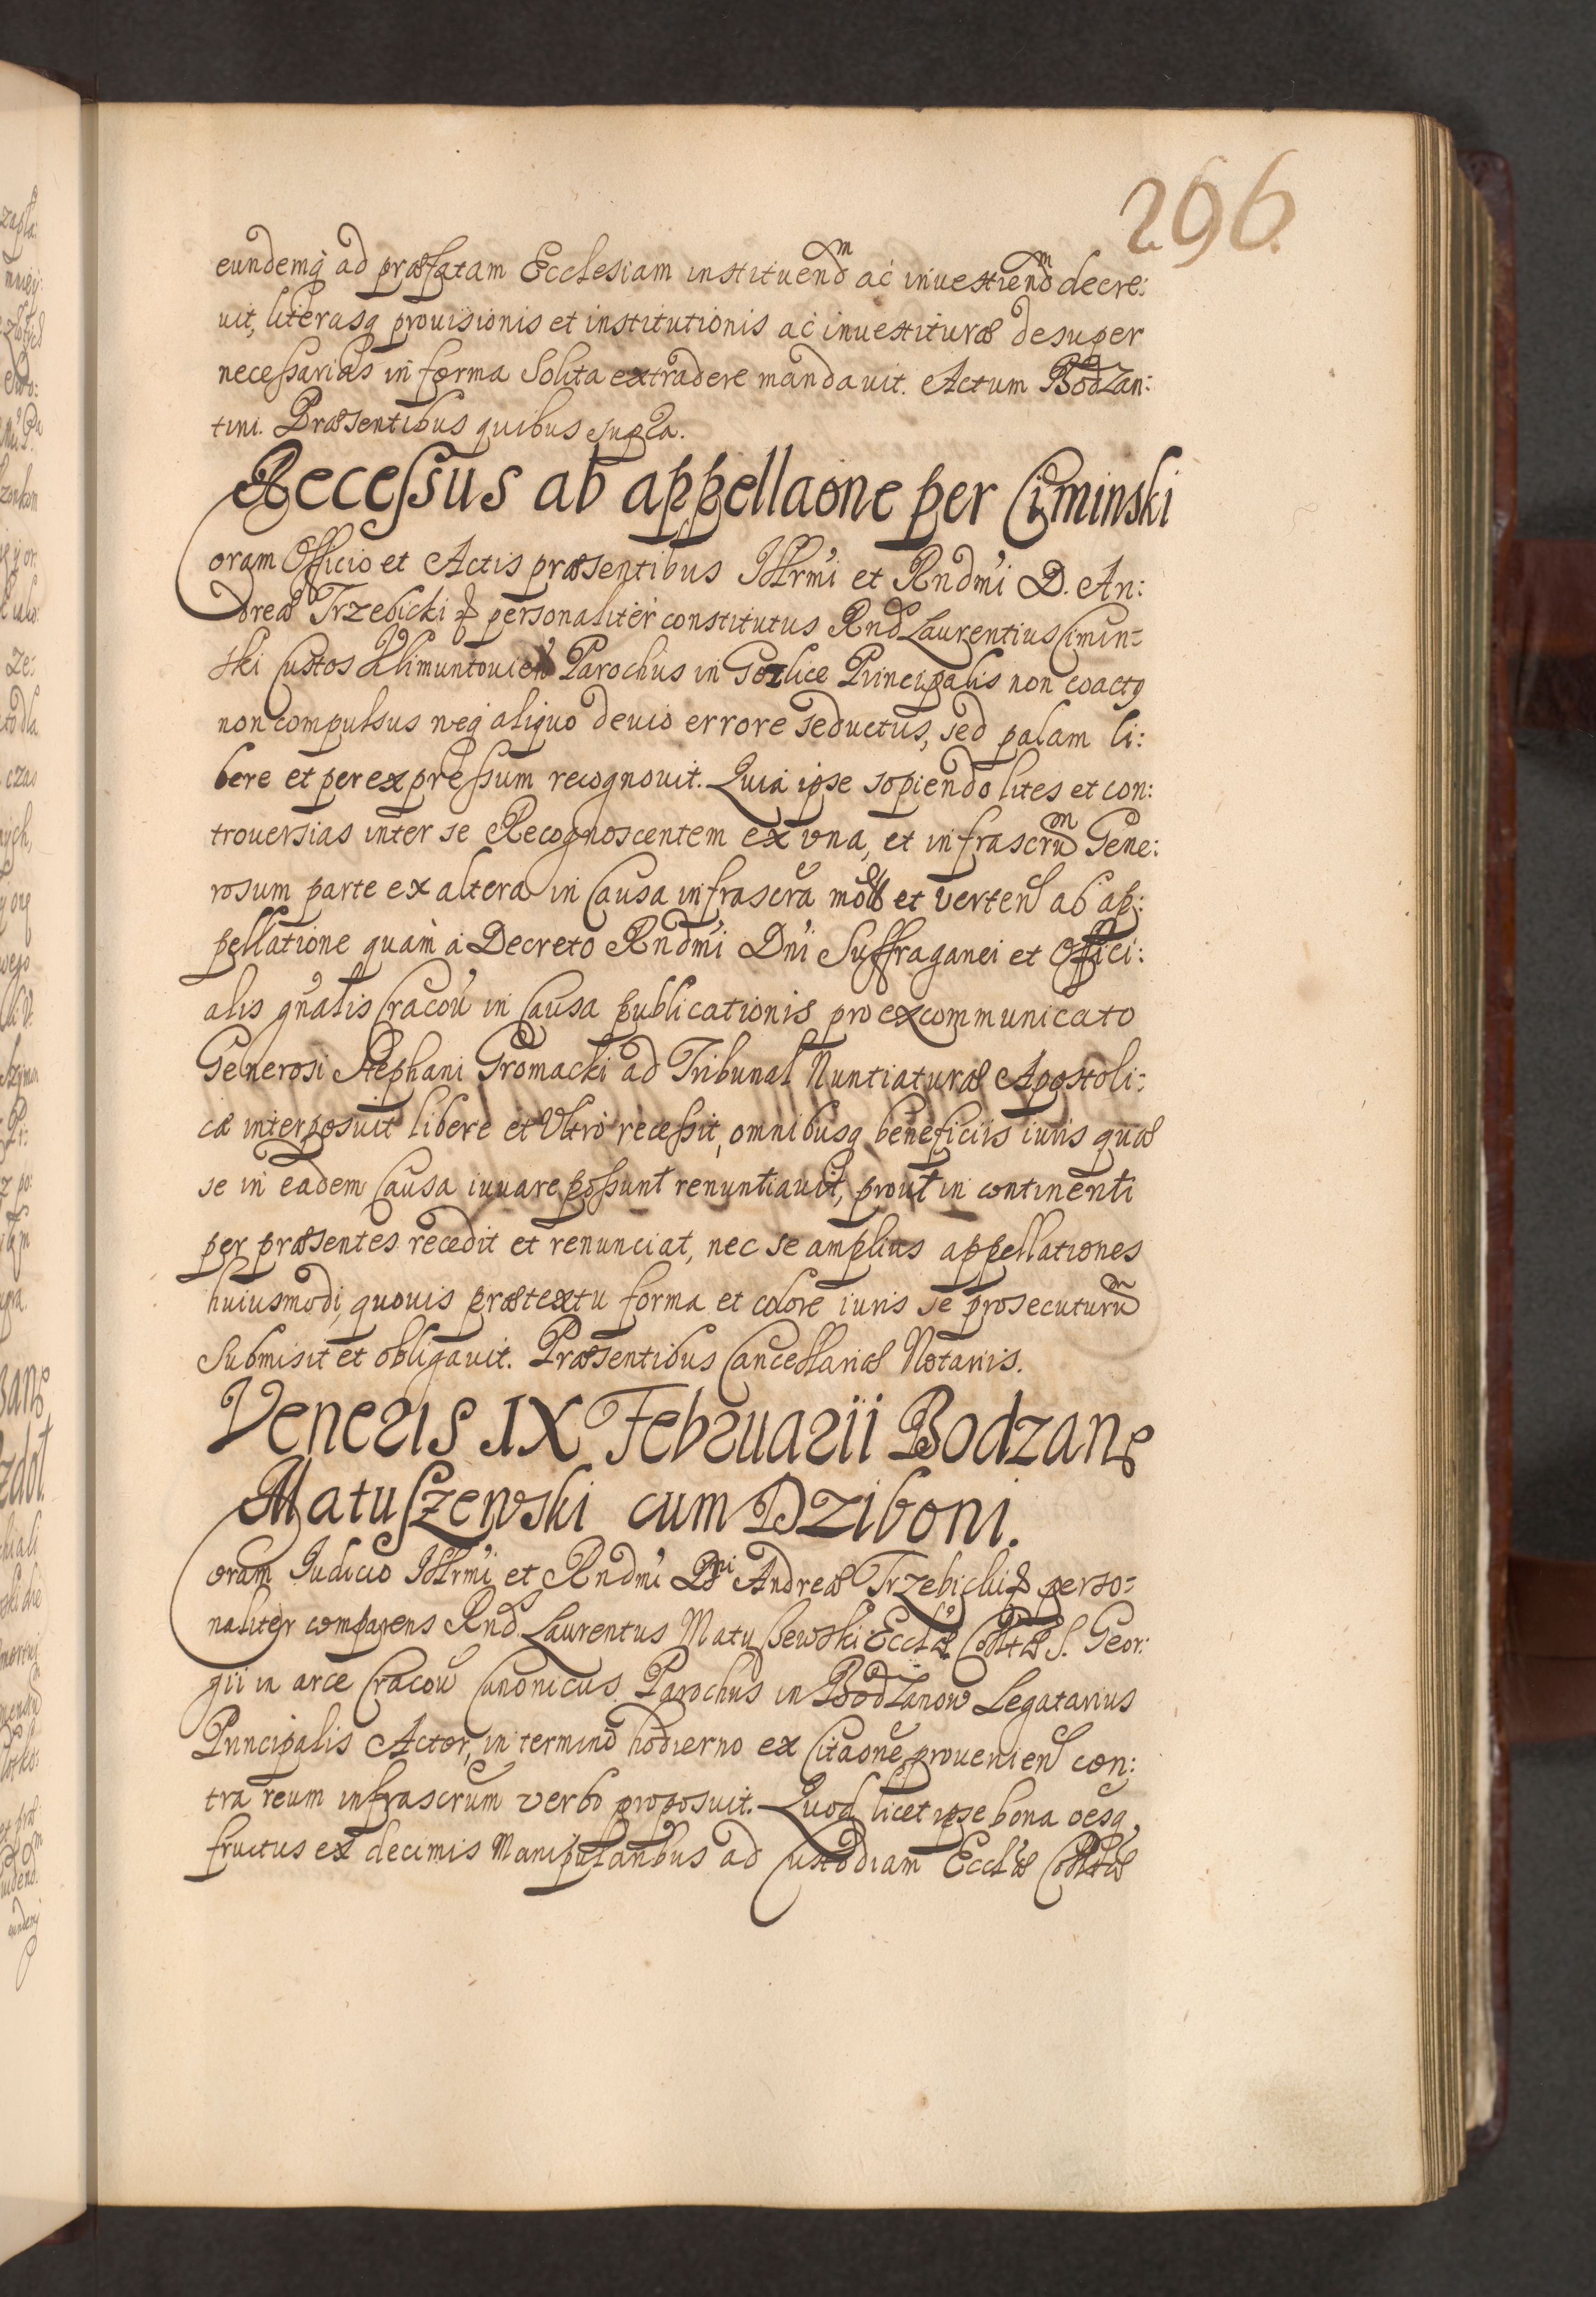 296.
eundemq ad præfatam Ecclesiam instituend͞m ac inuestiend͞m decre:
uit, literasq prouisionis et institutionis ac inuestituræ desuper
necessarias in forma solita extradere mandauit. Actum Bodzan:
tini. Præsentibus quibus supra.
Recessus ab appellaone per Ciminski
Coram Officio et Actis præsentibus Illrmi et Rndmi D. An:
dreæ Trzebicki & personaliter constitutus Rnd Laurentius Cimin=
ski Custos Klimuntouien Parochus in Gorlice Principalis non coactq
non compulsus neq aliquo deuio errore seductus, sed palam li:
bere et per expressum recognouit. Quia ipse sopiendo lites et con:
trouersias inter se Recognoscentem ex vna, et infrascrum Gene:
rosum parte ex altera in Causa infrascra mo et verten ab ap:
pellatione quam a Decreto Rndmi Dni Suffraganei et Offici:
alis gnalis Cracou in Causa publicationis pro excommunicato
Generosi Stephani Gromacki ad Tribunal Nuntiaturæ Apostoli:
cæ interposuit libere et Vltro recessit, omnibusq beneficiis iuris quæ
se in eadem Causa iuuare possunt renuntiauit, prout in continenti
per præsentes recedit et renunciat, nec se amplius appellationes
huiusmodi, quouis prætextu forma et colore iuris se prosecuturum
submisit et obligauit. Præsentibus Cancellariæ Notariis.
Veneris IX Februarii Bodzane
Matuszewski cum Dziboni.
Coram Iudicio Illrmi et Rndmi Dni Andreæ Trzebicki & perso=
naliter comparens Rnd. Laurentus Matussewski Ecclæ Colltæ S. Geor:
gii in arce Cracou Canonicus. Parochus in Bodzanow Legatarius
Principalis Actor, in termino hodierno ex Citaone prouenien con:
tra reum infrascrum verbo proposuit. Quod licet ipse bona oesq,
fructus ex decimis Manipularibus ad Custodiam Ecclæ Colltæ